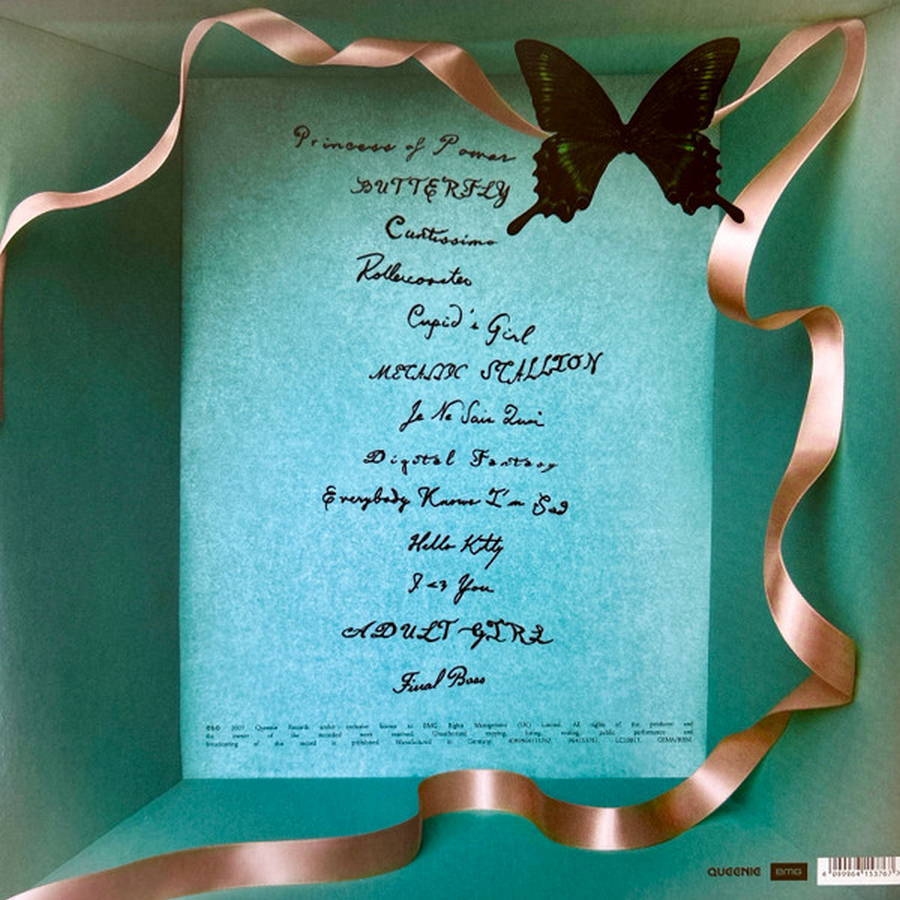 Princess of Power
BUTTERFLY
Cuntissimo
Rollercoaster
Cupid's Girl
METALLIC STALLION
Je Ne Sais Quoi
Digital Fantasy
Everybody Knows I'm Sad
Hello Kitty
I <3 You
ADULT GIRL
Final Boss
Queenie Records under exclusive license to BMG Rights Management (UK) Limited. All rights of the producer and
the owner of the recorded work reserved. Unauthorized copying, hiring, renting, public performance and
broadcasting of this record is prohibited. Manufactured in Germany.
QUEENIE BMG